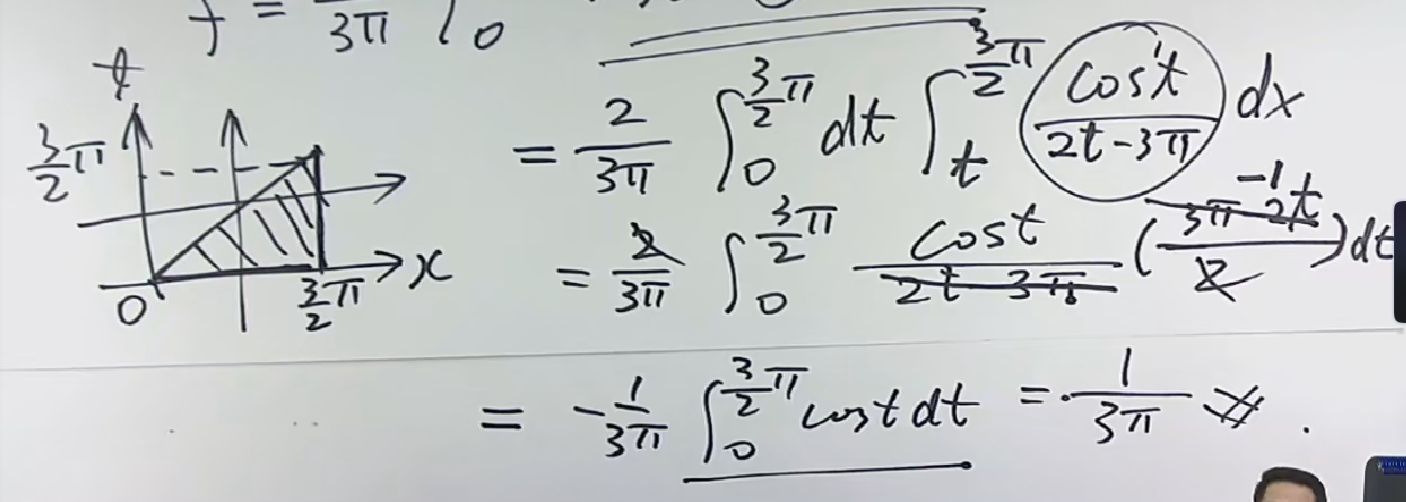 f = 3π ∫0
t
3/2 π
0
3/2 π
x
= 2/3π ∫_0^{3/2 π} dt ∫_t^{3/2 π} cost/(2t-3π) dx
= 2/3π ∫_0^{3/2 π} cost/(2t-3π) (-1 (3π-2t)/2) dt
= -1/3π ∫_0^{3/2 π} cost dt = 1/3π